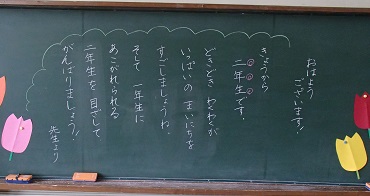 おはよう
ございます!
きょうから
二年生です。
どきどき わくわくが
いっぱいの まいにちを
すごしましょうね。
そして 一年生に
あこがれられる
二年生を 目ざして
がんばりましょう!
先生より